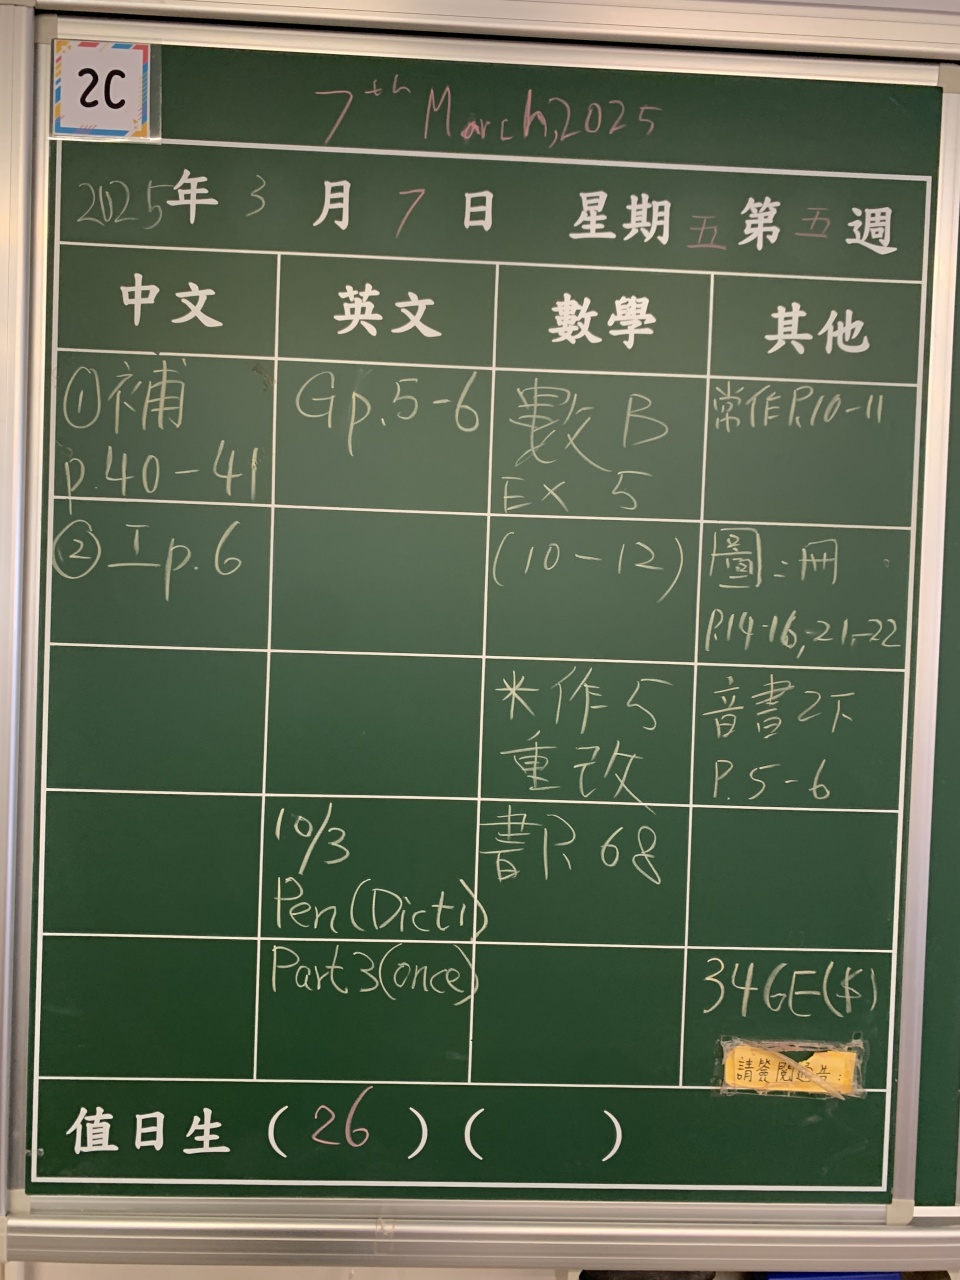 2C
7th March, 2025
2025年 3 月 7 日 星期 五 第 五 週
中文 英文 數學 其他
①補
p.40-41
②工p.6
Gp.5-6
10/3
Pen(Dicti)
Part 3(once)
數 B
EX 5
(10-12)
米作5
重改
書P. 68
常作P.10-11
圖:冊
P.14-16,-21,-22
音書2下
P.5-6
346E($)
請簽閱通告:
值日生 ( 26 ) ( )